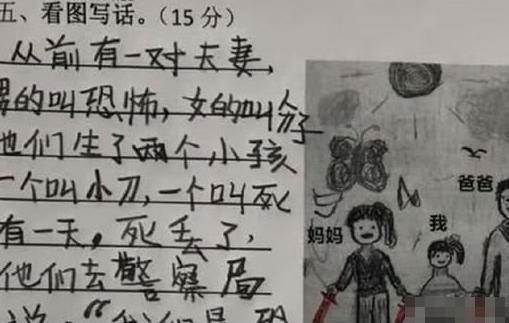 五、看图写话。（15 分）
从前有一对夫妻，
男的叫恐怖，女的叫分子
他们生了两个小孩
一个叫小刀，一个叫死
有一天，死丢了，
他们去警察局
说："我们是恐
妈妈
我
爸爸